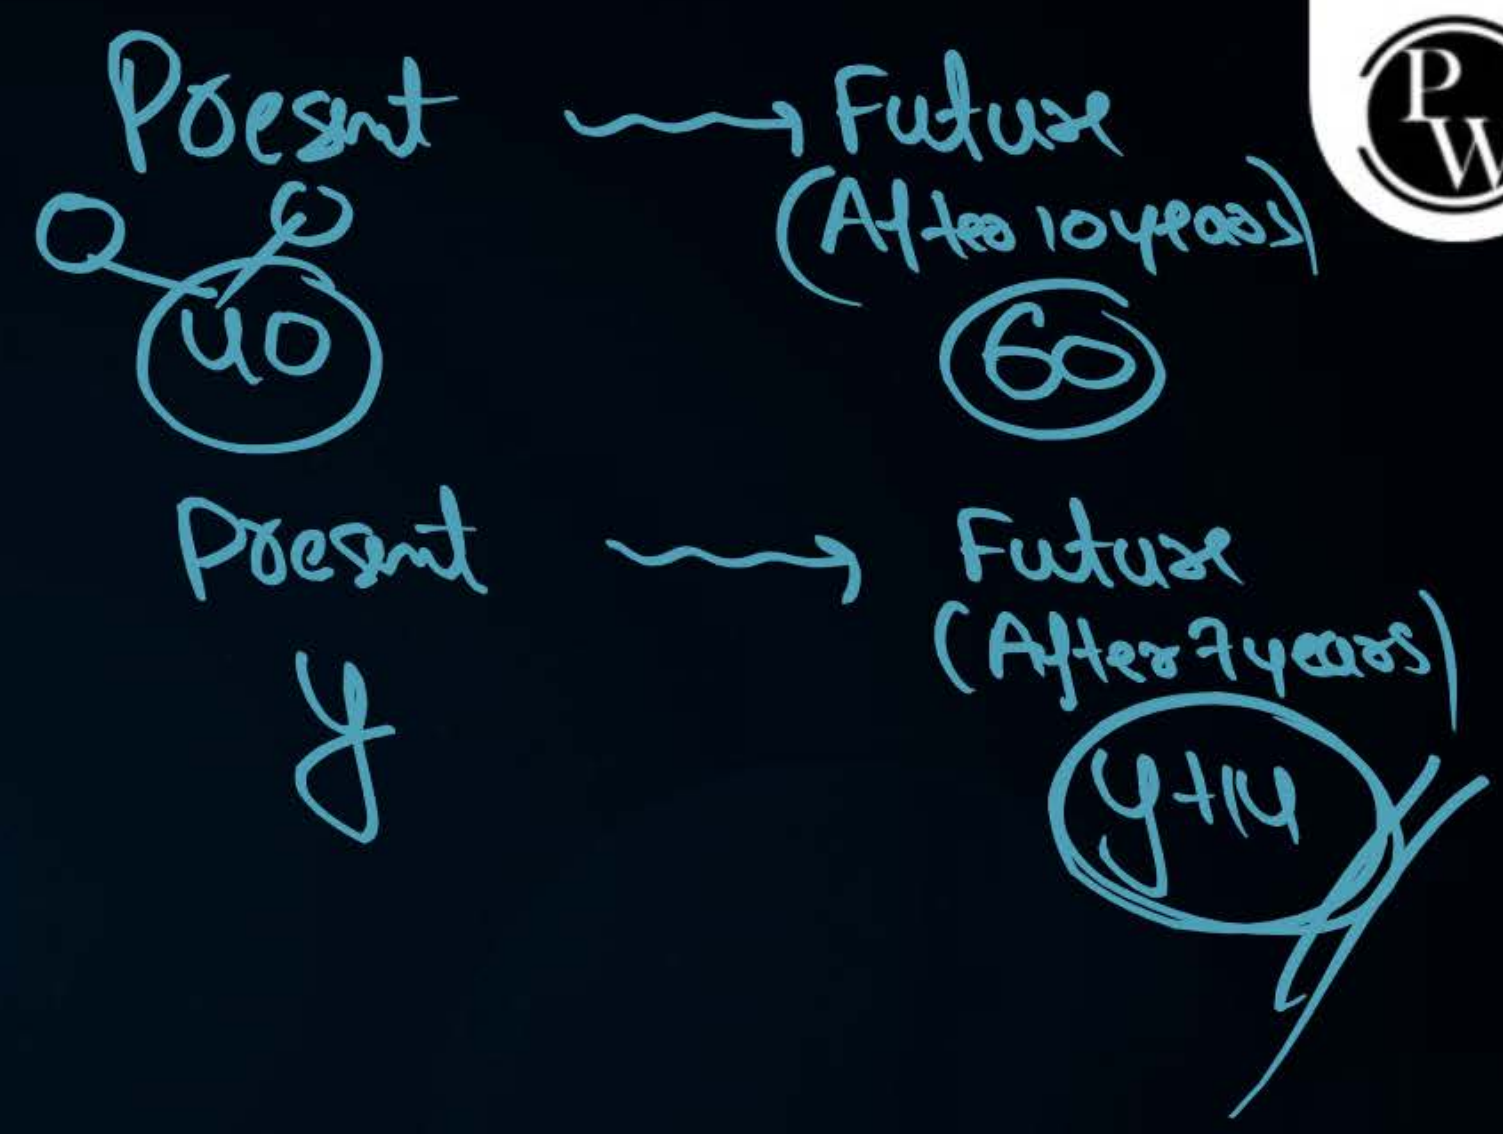 Present → Future
(After 10 years)
40
60
Present → Future
(After 7 years)
y
y+14
PW